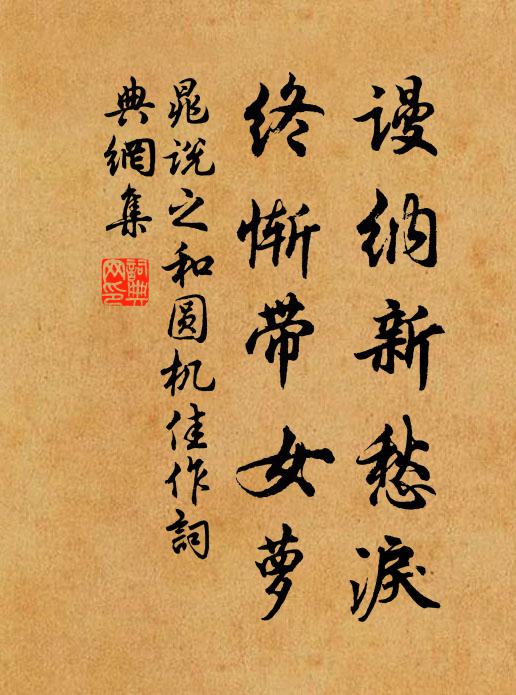 谩纳新愁淚
终惭带女萝
晁说之和圆机佳作詞
典網集
詞典
网印